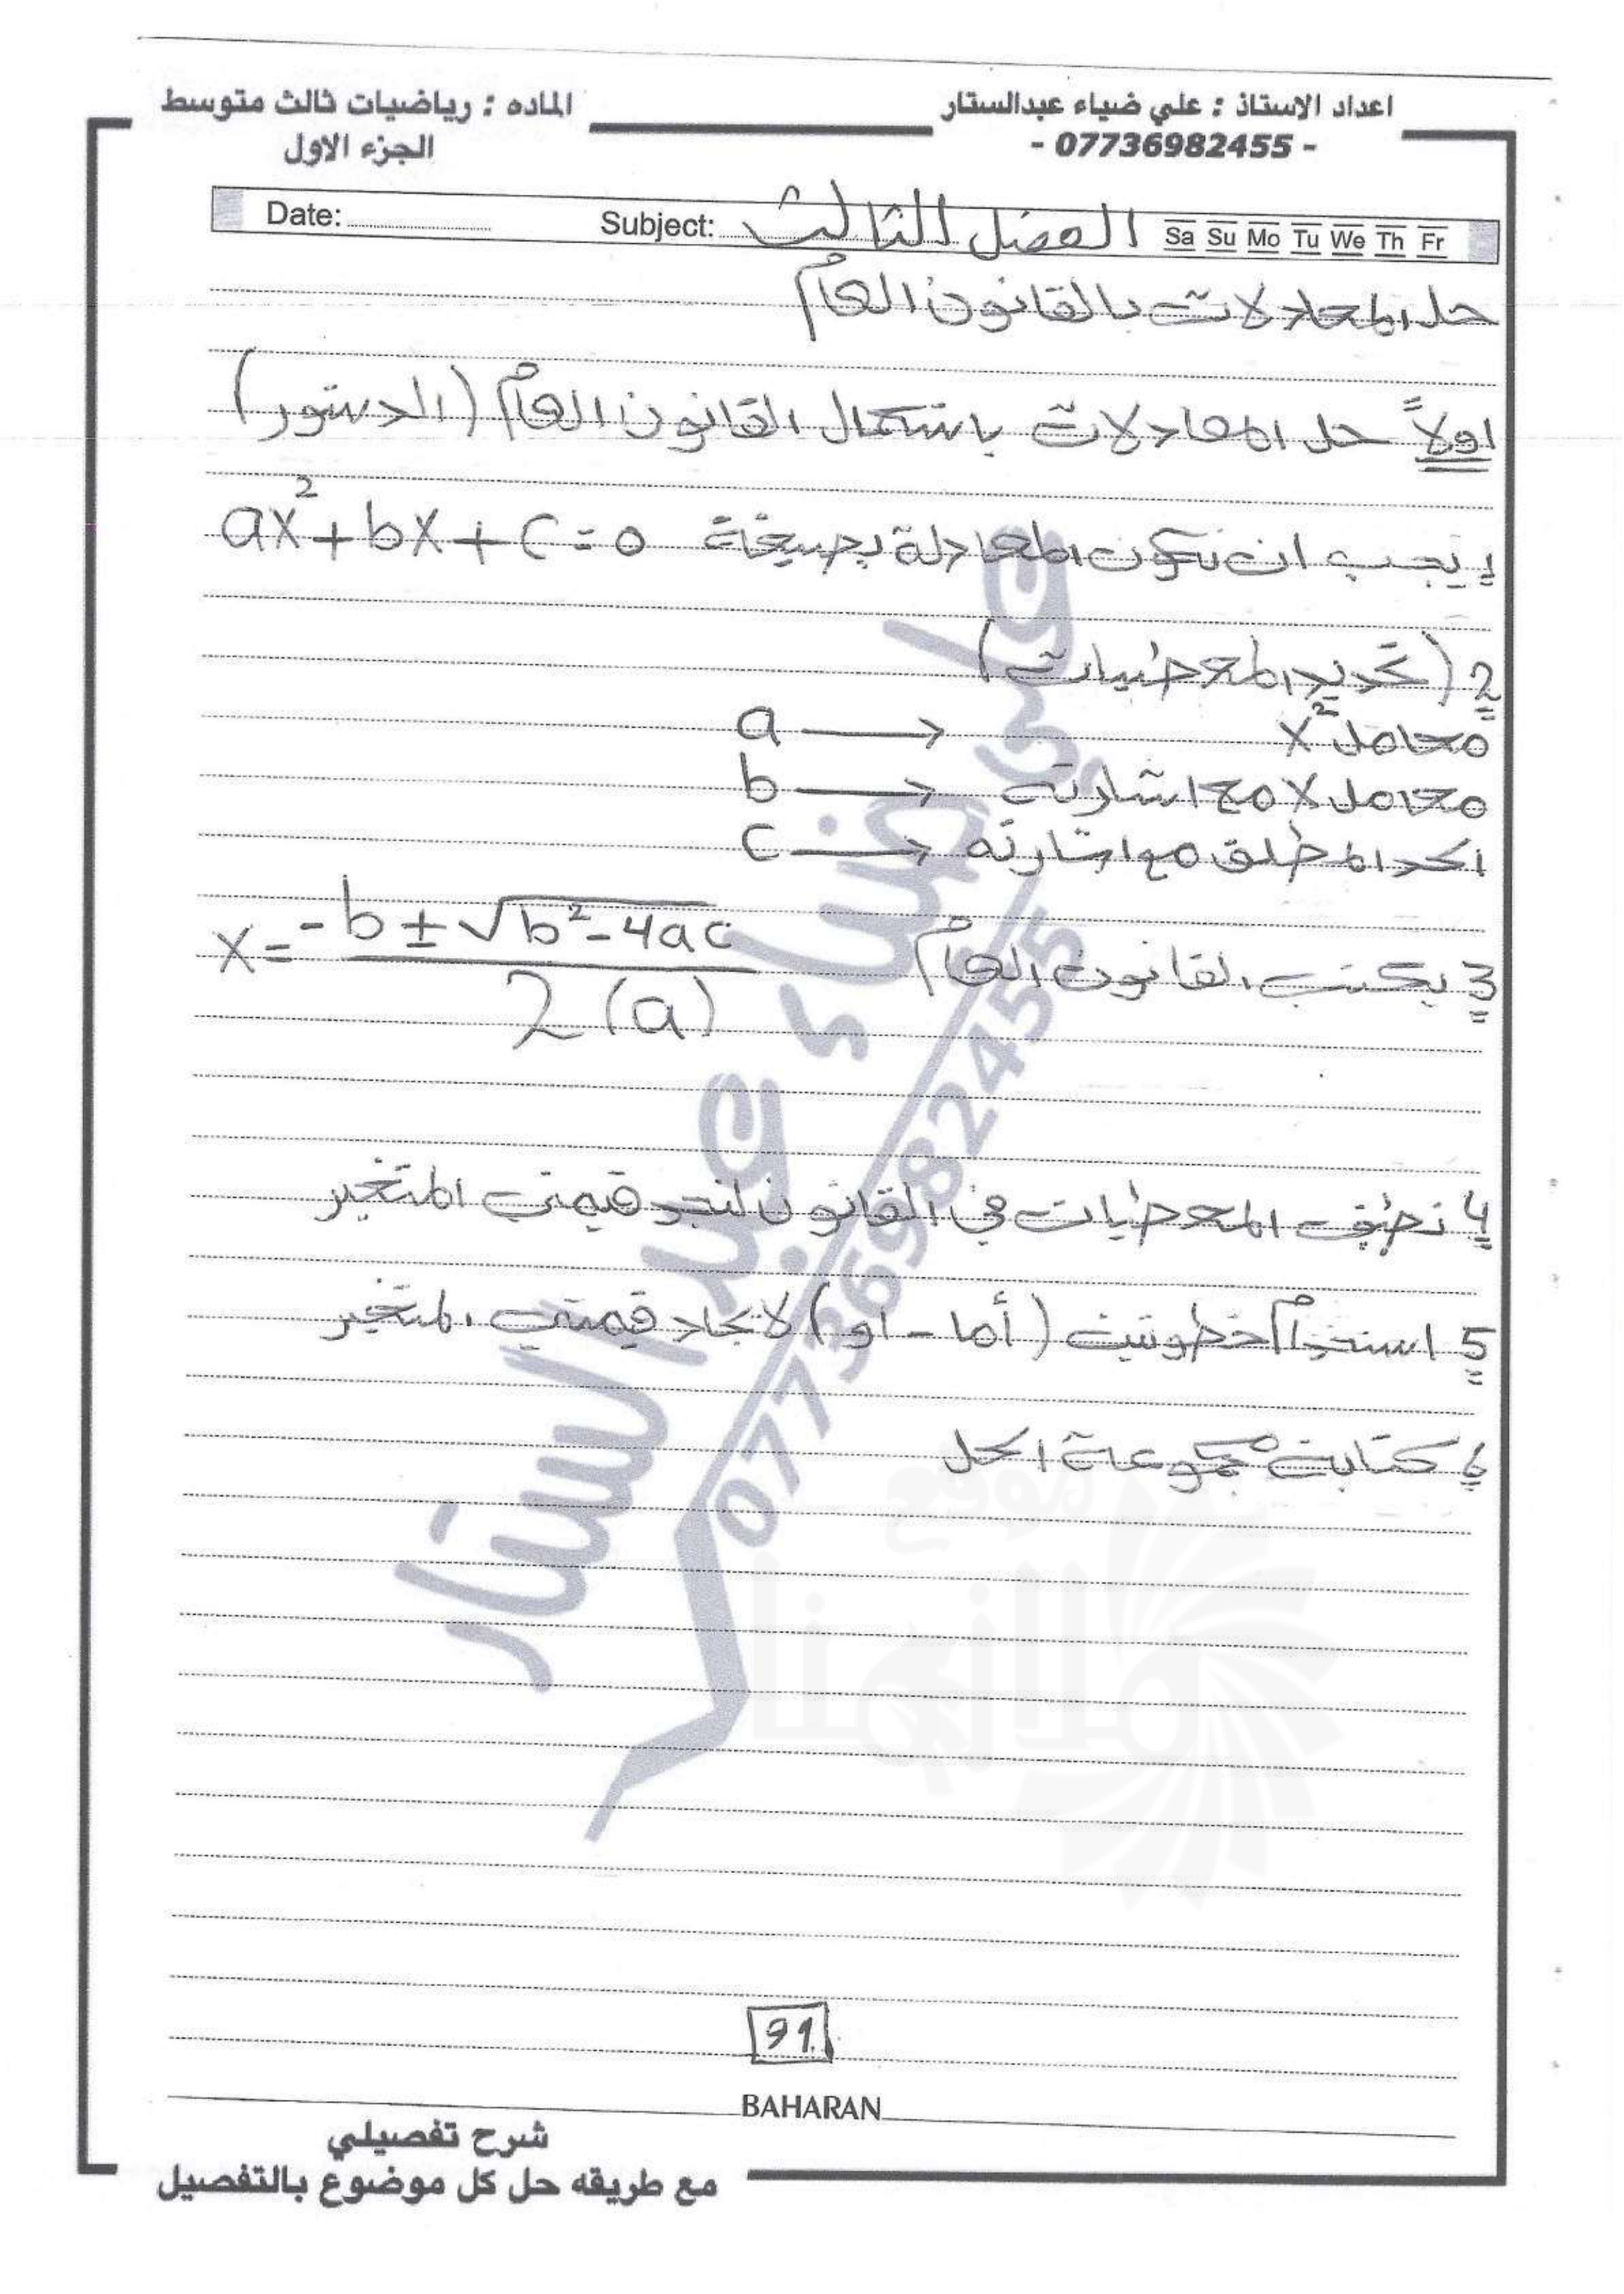 اعداد الاستاذ : علي ضياء عبدالستار
- 07736982455 -
الماده : رياضيات ثالث متوسط
الجزء الاول
Date: Subject: الفصل الثالث Sa Su Mo Tu We Th Fr
حل المعادلات بالقانون العام
اولاً حل المعادلات باستعمال القانون العام (الدستور)
يجب ان تكون المعادلة بصيغة ax²+bx+c=0
2 (تحديد المعطيات)
معامل x² ← a
معامل x مع اشارته ← b
الحد المطلق مع اشارته ← c
3 يكتب القانون العام x = -b ± √b²-4ac / 2(a)
4 نطبق المعطيات في القانون لنجد قيمتي المتغير
5 استخدام خطوتين (أما - او) لايجاد قيمتي المتغير
6 كتابة مجموعة الحل
علي ضياء عبد الستار
07736982455
موقع
ملازمنا
91
BAHARAN
شرح تفصيلي
مع طريقه حل كل موضوع بالتفصيل